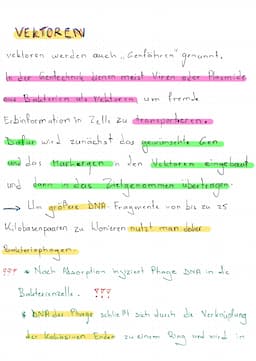 VEKTOREN
vektoren werden auch „Genfähren" genannt.
In der Gentechnik dienen meist Viren oder Plasmide
aus Bakterien als Vektoren, um fremde
Erbinformation in Zelle zu transportieren.
Dafür wird zunächst das gewünschte Gen
und das Markergen in den Vektoren eingebaut
und dann in das Zielgenommen übertragen.
→ Um größere DNA-Fragmente von bis zu 25
Kilobasenpaaren zu klonieren nutzt man dabei
Bakteriophagen.
??? * Nach Absorption injziert Phage DNA in die
Bakterienzelle. ???
* DNA der Phage schließt sich durch die Verknüpfung
der kohäsiven Enden zu einem Ring und wird in